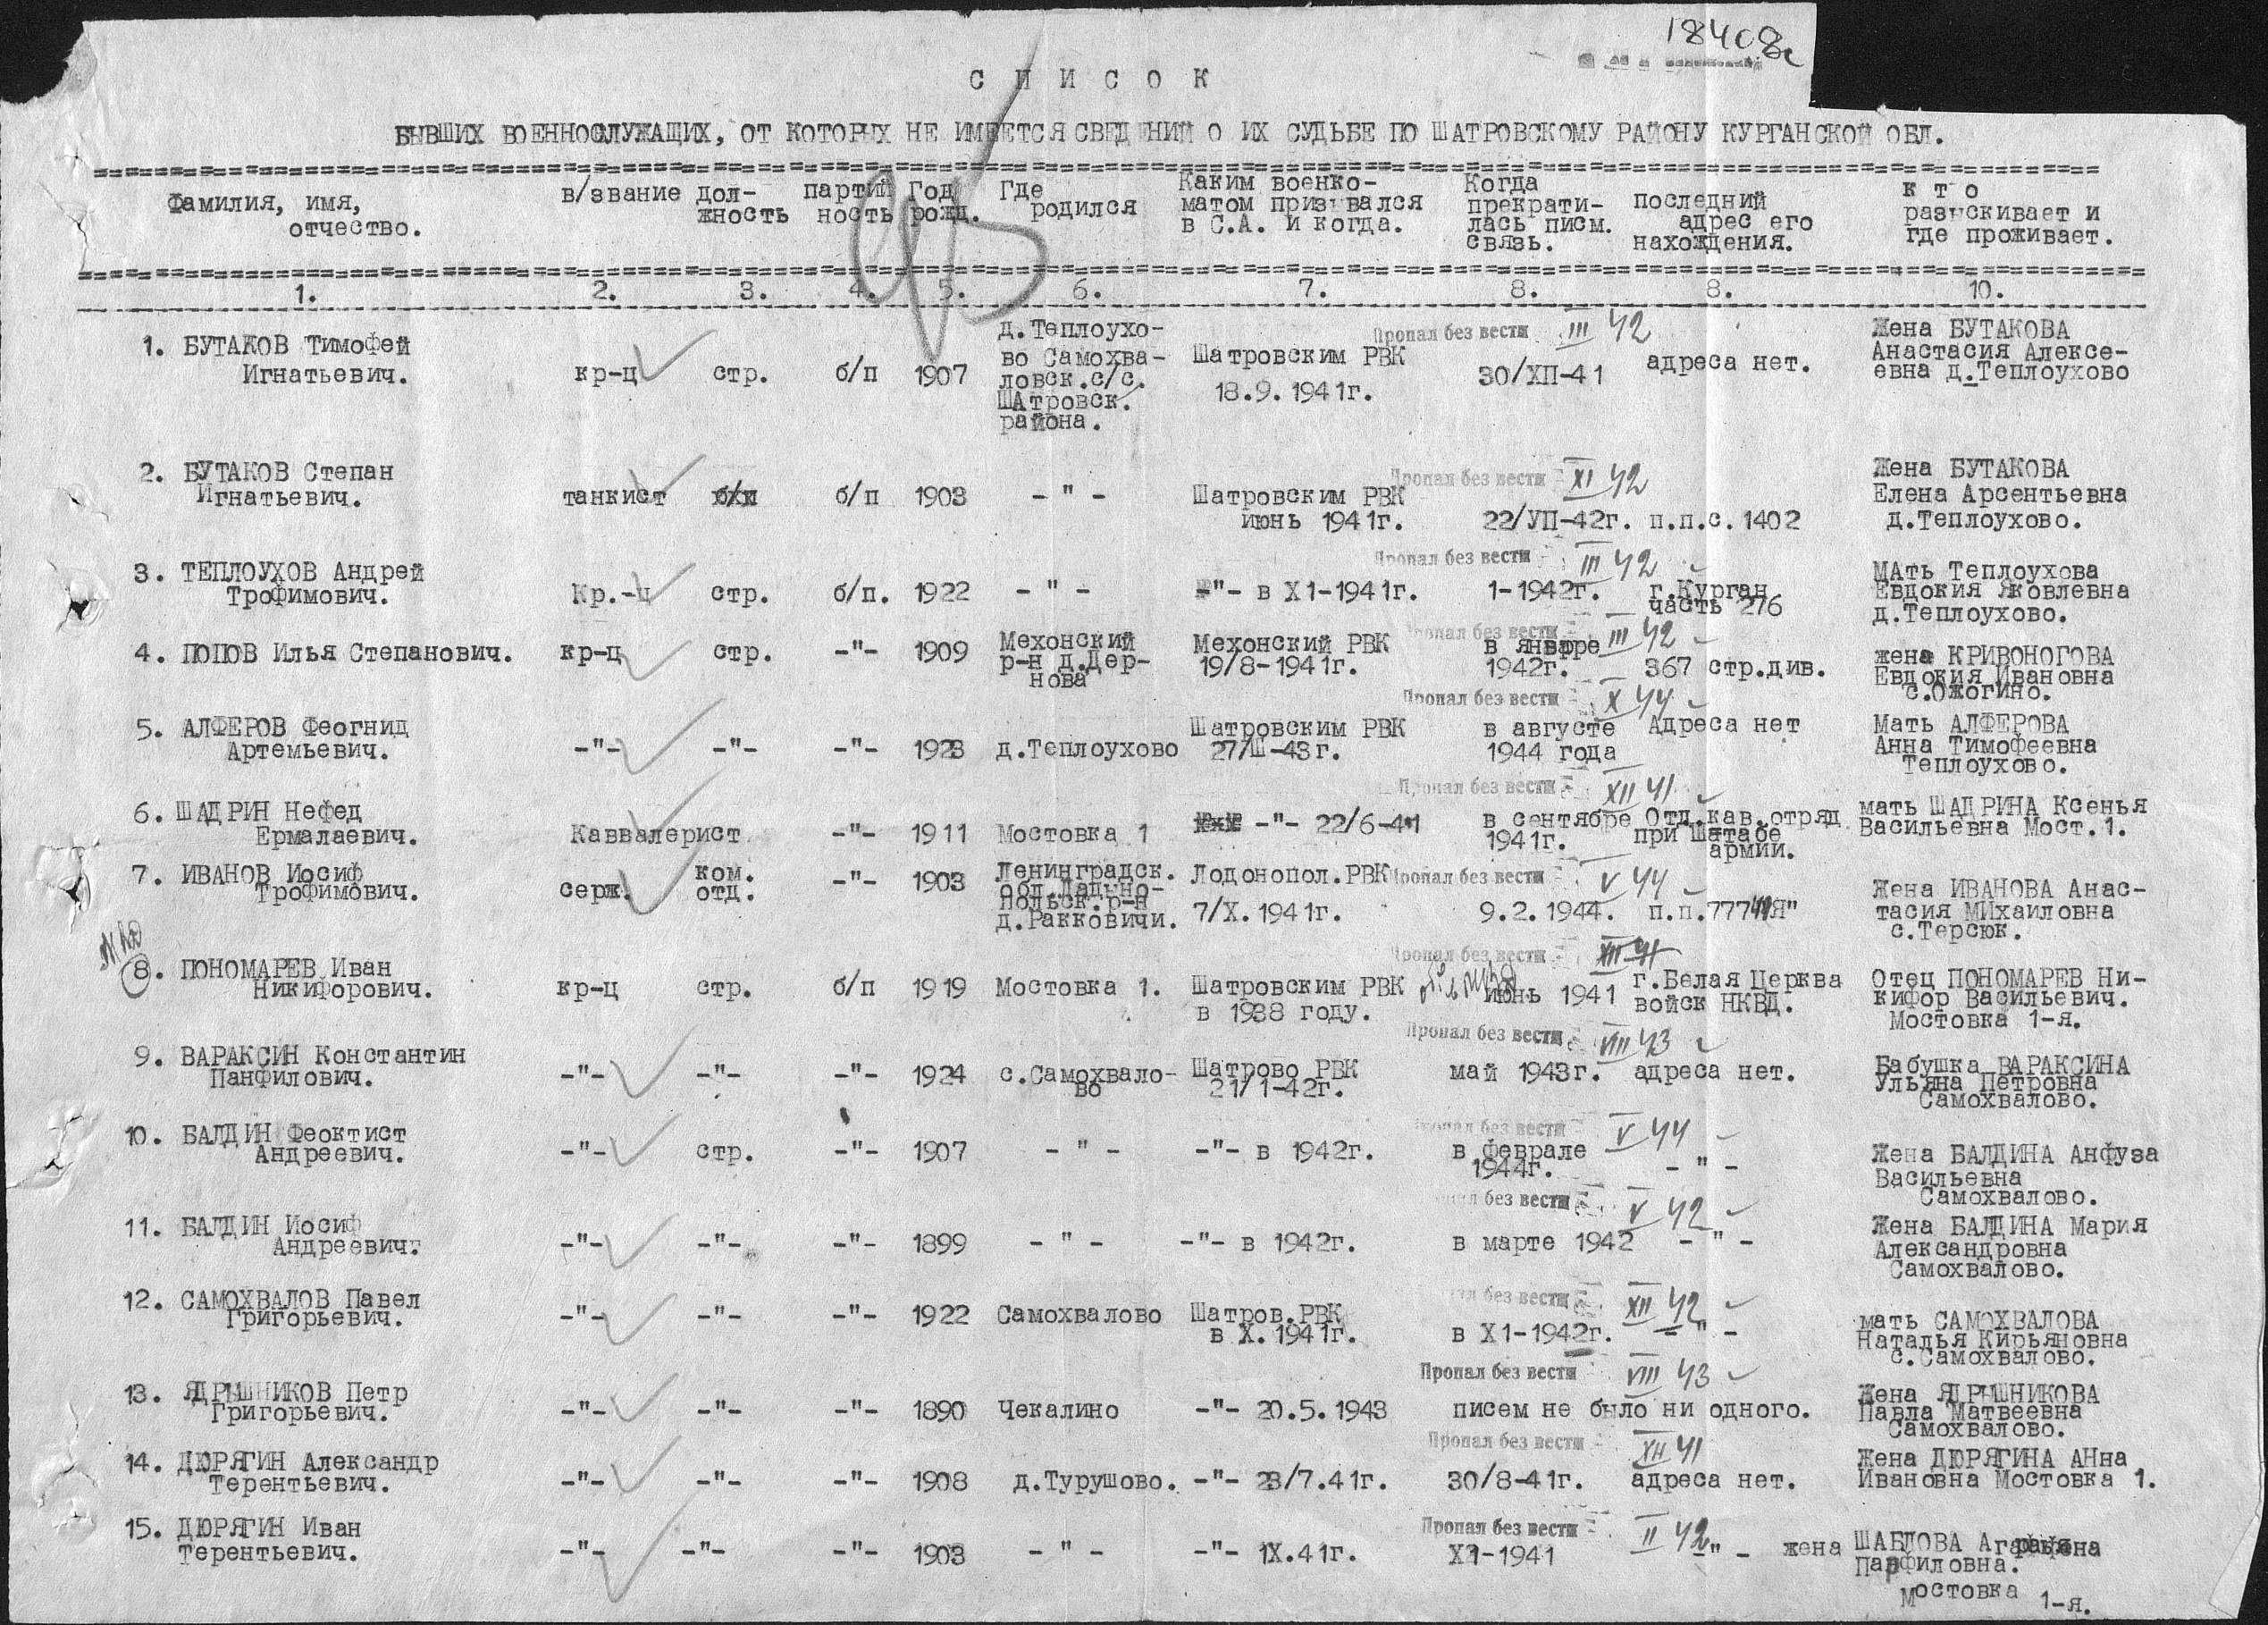 18408с
С П И С О К
БЫВШИХ ВОЕННОСЛУЖАЩИХ, ОТ КОТОРЫХ НЕ ИМЕЕТСЯ СВЕДЕНИЙ О ИХ СУДЬБЕ ПО ШАТРОВСКОМУ РАЙОНУ КУРГАНСКОЙ ОБЛ.
Фамилия, имя, отчество. в/звание дол-жность партий ность Год рожд. Где родился Каким военко-матом призывался в С.А. и когда. Когда прекрати-лась писм. связь. последний адрес его нахождения. к т о разыскивает и где проживает.
1. 2. 3. 4. 5. 6. 7. 8. 8. 10.
Пропал без вести III 42
1. БУТАКОВ Тимофей Игнатьевич. кр-ц стр. б/п 1907 д.Теплоухо-во Самохва-ловск.с/с. ШАтровск. района. Шатровским РВК 18.9.1941г. 30/ХП-41 адреса нет. Жена БУТАКОВА Анастасия Алексе-евна д.Теплоухово
Пропал без вести XI 42
2. БУТАКОВ Степан Игнатьевич. танкист б/п б/п 1903 -"- Шатровским РВК июнь 1941г. 22/УП-42г. п.п.с.1402 Жена БУТАКОВА Елена Арсентьевна д.Теплоухово.
Пропал без вести III 42
3. ТЕПЛОУХОВ Андрей Трофимович. Кр.-ц стр. б/п. 1922 -"- -"- в Х1-1941г. 1-1942г. г.Курган часть 276 МАть Теплоухова Евдокия Яковлевна д.Теплоухово.
Пропал без вести III 42
4. ПОПОВ Илья Степанович. кр-ц стр. -"- 1909 Мехонский р-н д.Дер-нова Мехонский РВК 19/8-1941г. в январе 1942г. 367 стр.див. жена КРИВОНОГОВА Евдокия Ивановна с.Ожогино.
Пропал без вести X 44
5. АЛФЕРОВ Феогнид Артемьевич. -"- -"- -"- 1923 д.Теплоухово Шатровским РВК 27/Ш-43г. в августе 1944 года Адреса нет Мать АЛФЕРОВА Анна Тимофеевна Теплоухово.
Пропал без вести XII 41
6. ШАДРИН Нефед Ермалаевич. Каввалерист -"- 1911 Мостовка 1 -"- 22/6-41 в сентябре 1941г. Отд.кав.отряд при Штабе армии. мать ШАДРИНА Ксенья Васильевна Мост.1.
Пропал без вести V 44
7. ИВАНОВ Иосиф Трофимович. серж. ком. отд. -"- 1903 Ленинградск. обл.Ладыно-польск.р-н д.Ракковичи. Лодонопол.РВК 7/Х.1941г. 9.2.1944. п.п.77741"Я" Жена ИВАНОВА Анас-тасия МИхаиловна с.Терсюк.
Пропал без вести XII 41
8. ПОНОМАРЕВ Иван Никифорович. кр-ц стр. б/п 1919 Мостовка 1. Шатровским РВК в 1938 году. июнь 1941 г.Белая Церква войск НКВД. Отец ПОНОМАРЕВ Ни-кифор Васильевич. Мостовка 1-я.
Пропал без вести VIII 43
9. ВАРАКСИН Константин Панфилович. -"- -"- -"- 1924 с.Самохвало-во Шатрово РВК 21/1-42г. май 1943г. адреса нет. Бабушка ВАРАКСИНА Ульяна Петровна Самохвалово.
Пропал без вести V 44
10. БАЛДИН Феоктист Андреевич. -"- стр. -"- 1907 -"- -"- в 1942г. в феврале 1944г. -"- Жена БАЛДИНА Анфуза Васильевна Самохвалово.
без вести V 42
11. БАЛДИН Иосиф Андреевич. -"- -"- -"- 1899 -"- -"- в 1942г. в марте 1942 -"- Жена БАЛДИНА Мария Александровна Самохвалово.
без вести XII 42
12. САМОХВАЛОВ Павел Григорьевич. -"- -"- -"- 1922 Самохвалово Шатров.РВК в Х.1941г. в Х1-1942г. -"- мать САМОХВАЛОВА Наталья Кирьяновна с.Самохвалово.
Пропал без вести VIII 43
13. ЯДРЫШНИКОВ Петр Григорьевич. -"- -"- -"- 1890 Чекалино -"- 20.5.1943 писем не было ни одного. Жена ЯДРЫШНИКОВА Павла Матвеевна Самохвалово.
Пропал без вести XII 41
14. ДЮРЯГИН Александр Терентьевич. -"- -"- -"- 1908 д.Турушово. -"- 23/7.41г. 30/8-41г. адреса нет. Жена ДЮРЯГИНА АНна Ивановна Мостовка 1.
Пропал без вести II 42
15. ДЮРЯГИН Иван Терентьевич. -"- -"- -"- 1903 -"- -"- 1Х.41г. Х1-1941 -"- жена ШАБЛОВА Аграфена Парфиловна. Мостовка 1-я.